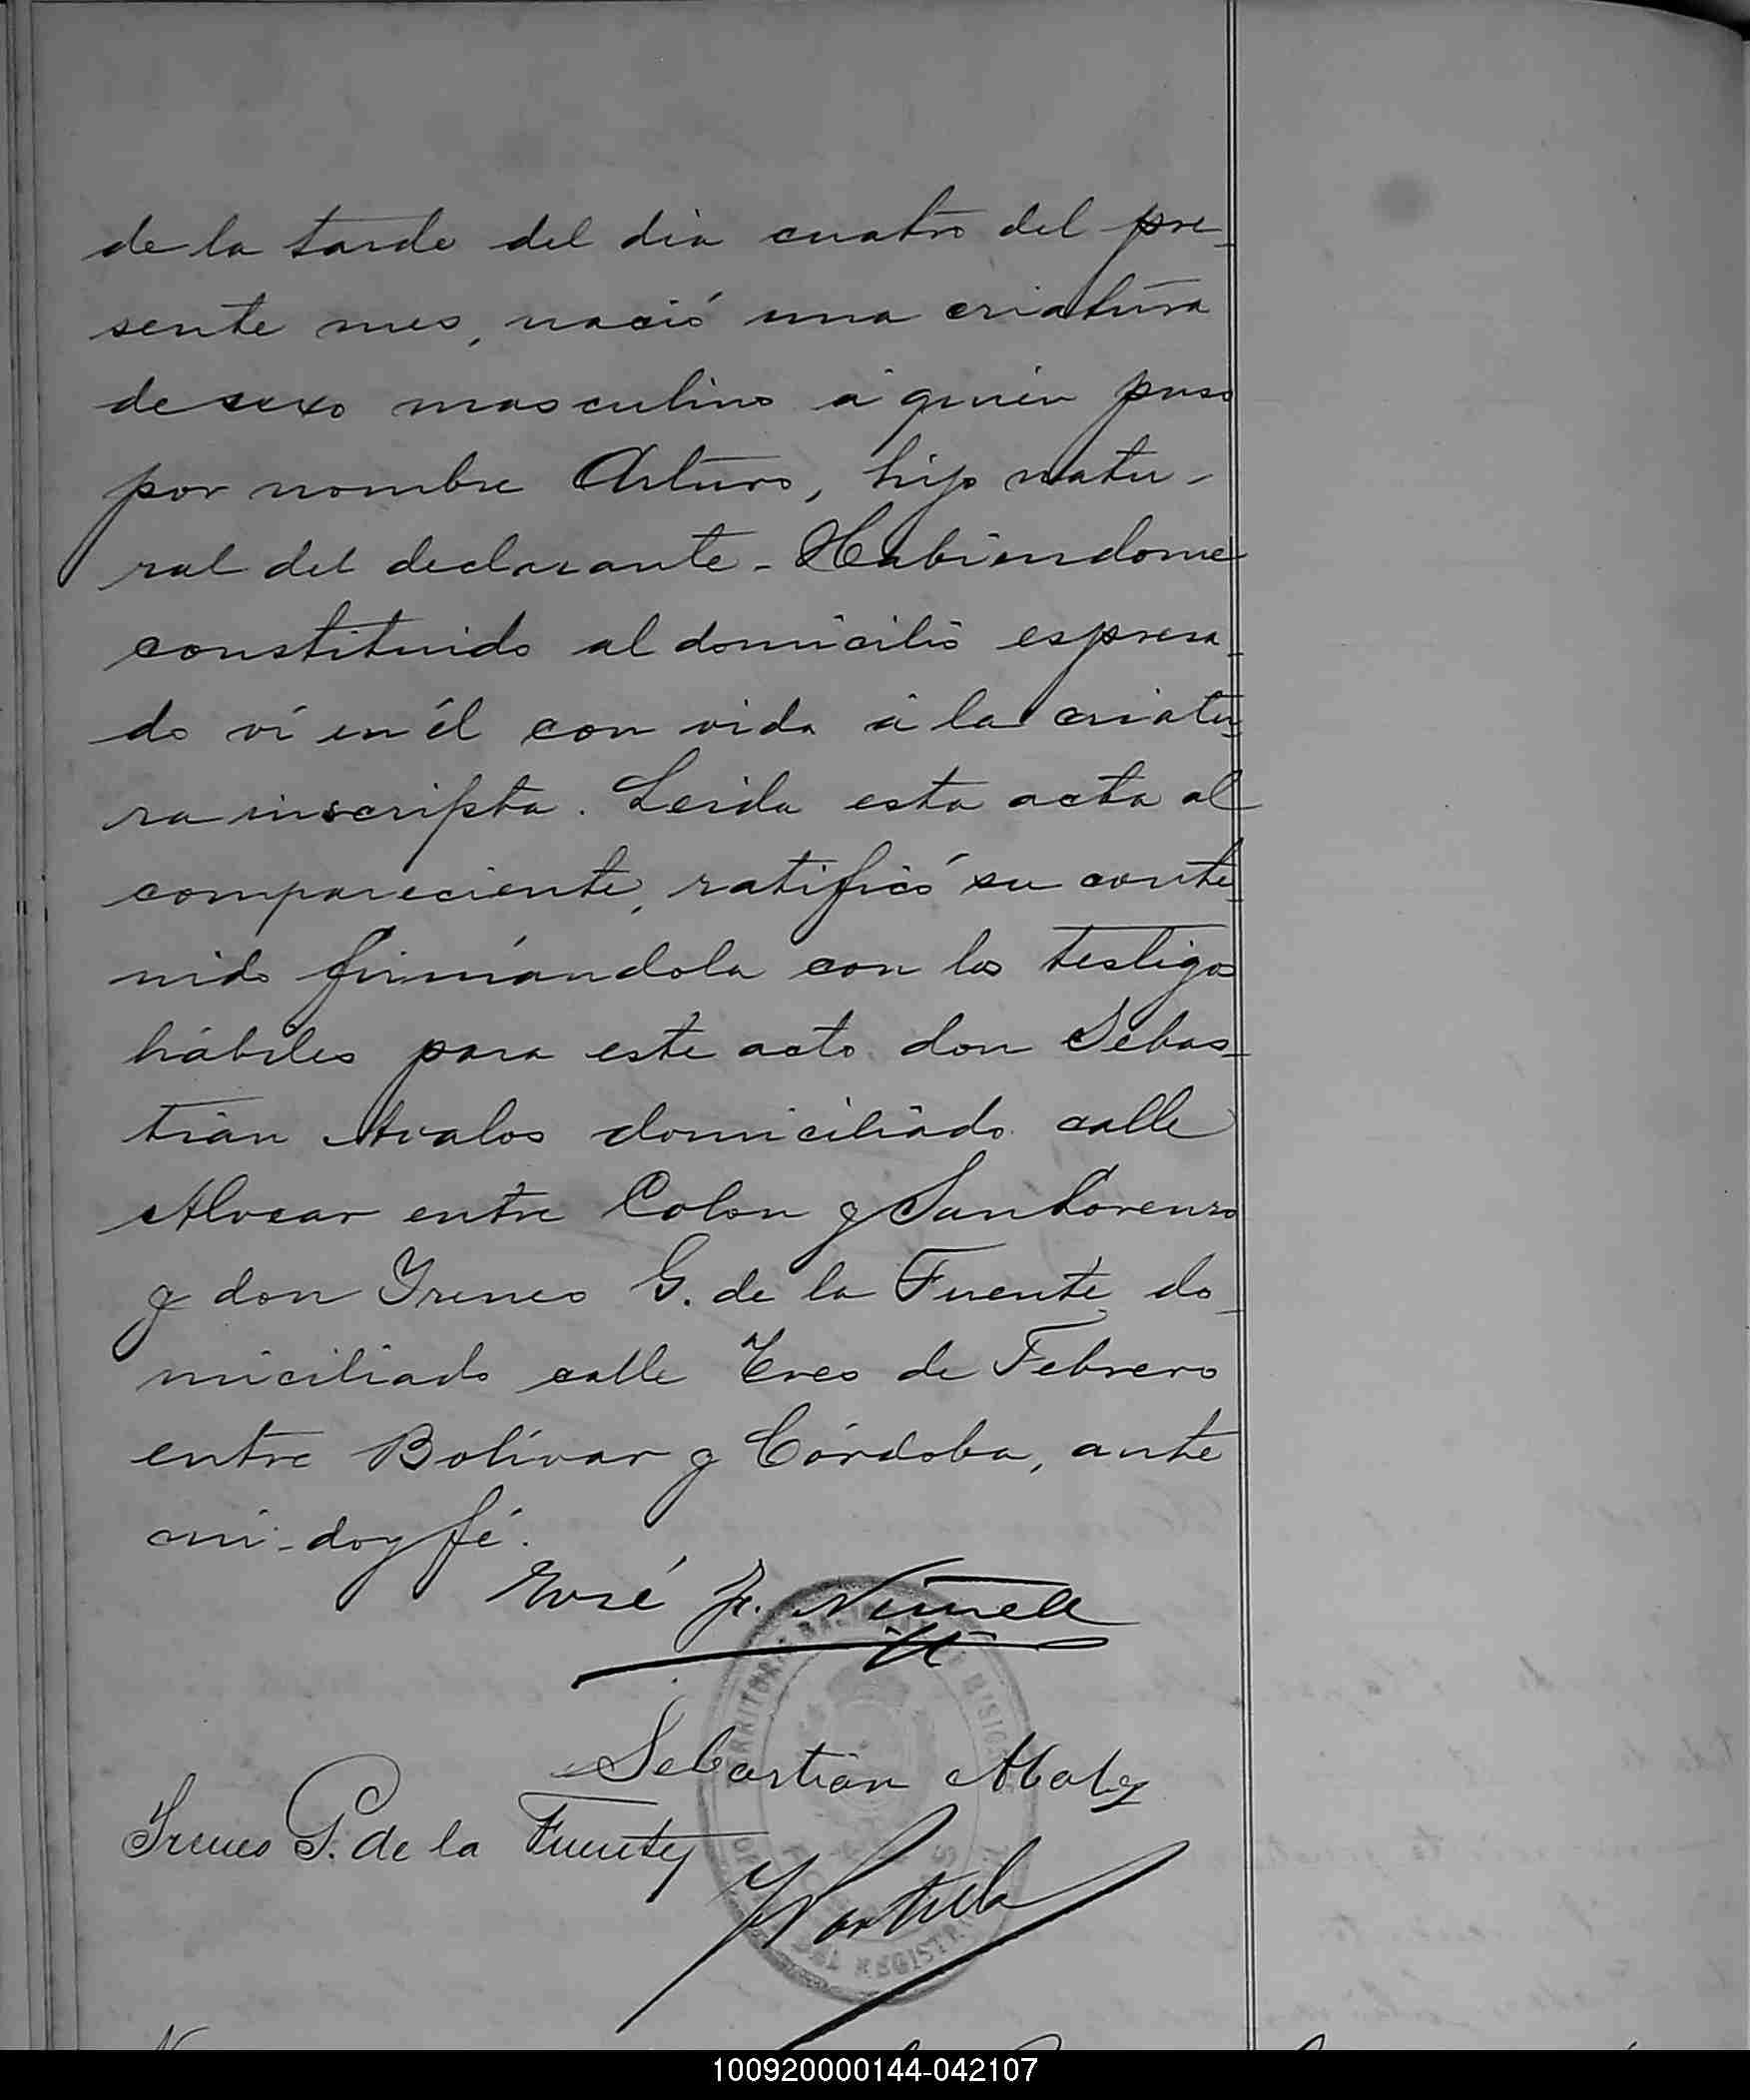 de la tarde del dia cuatro del pre-
sente mes, nació una criatura
de sexo masculino á quien puso
por nombre Arturo, hijo natu-
ral del declarante - Habiendome
constituido al domicilio espresa-
do ví en él con vida á la criatu-
ra inscripta. Leida esta acta al
compareciente, ratificó su conte-
nido firmándola con los testigos
hábiles para este acto don Sebas-
tián Avalos domiciliado calle
Alvear entre Colon y San Lorenzo
y don Yreneo G. de la Fuente do-
miciliado calle Tres de Febrero
entre Bolívar y Córdoba, ante
mi - doy fé.
José
Sebastian
Ireneo G. de la Fuente
REGISTR
100920000144-042107